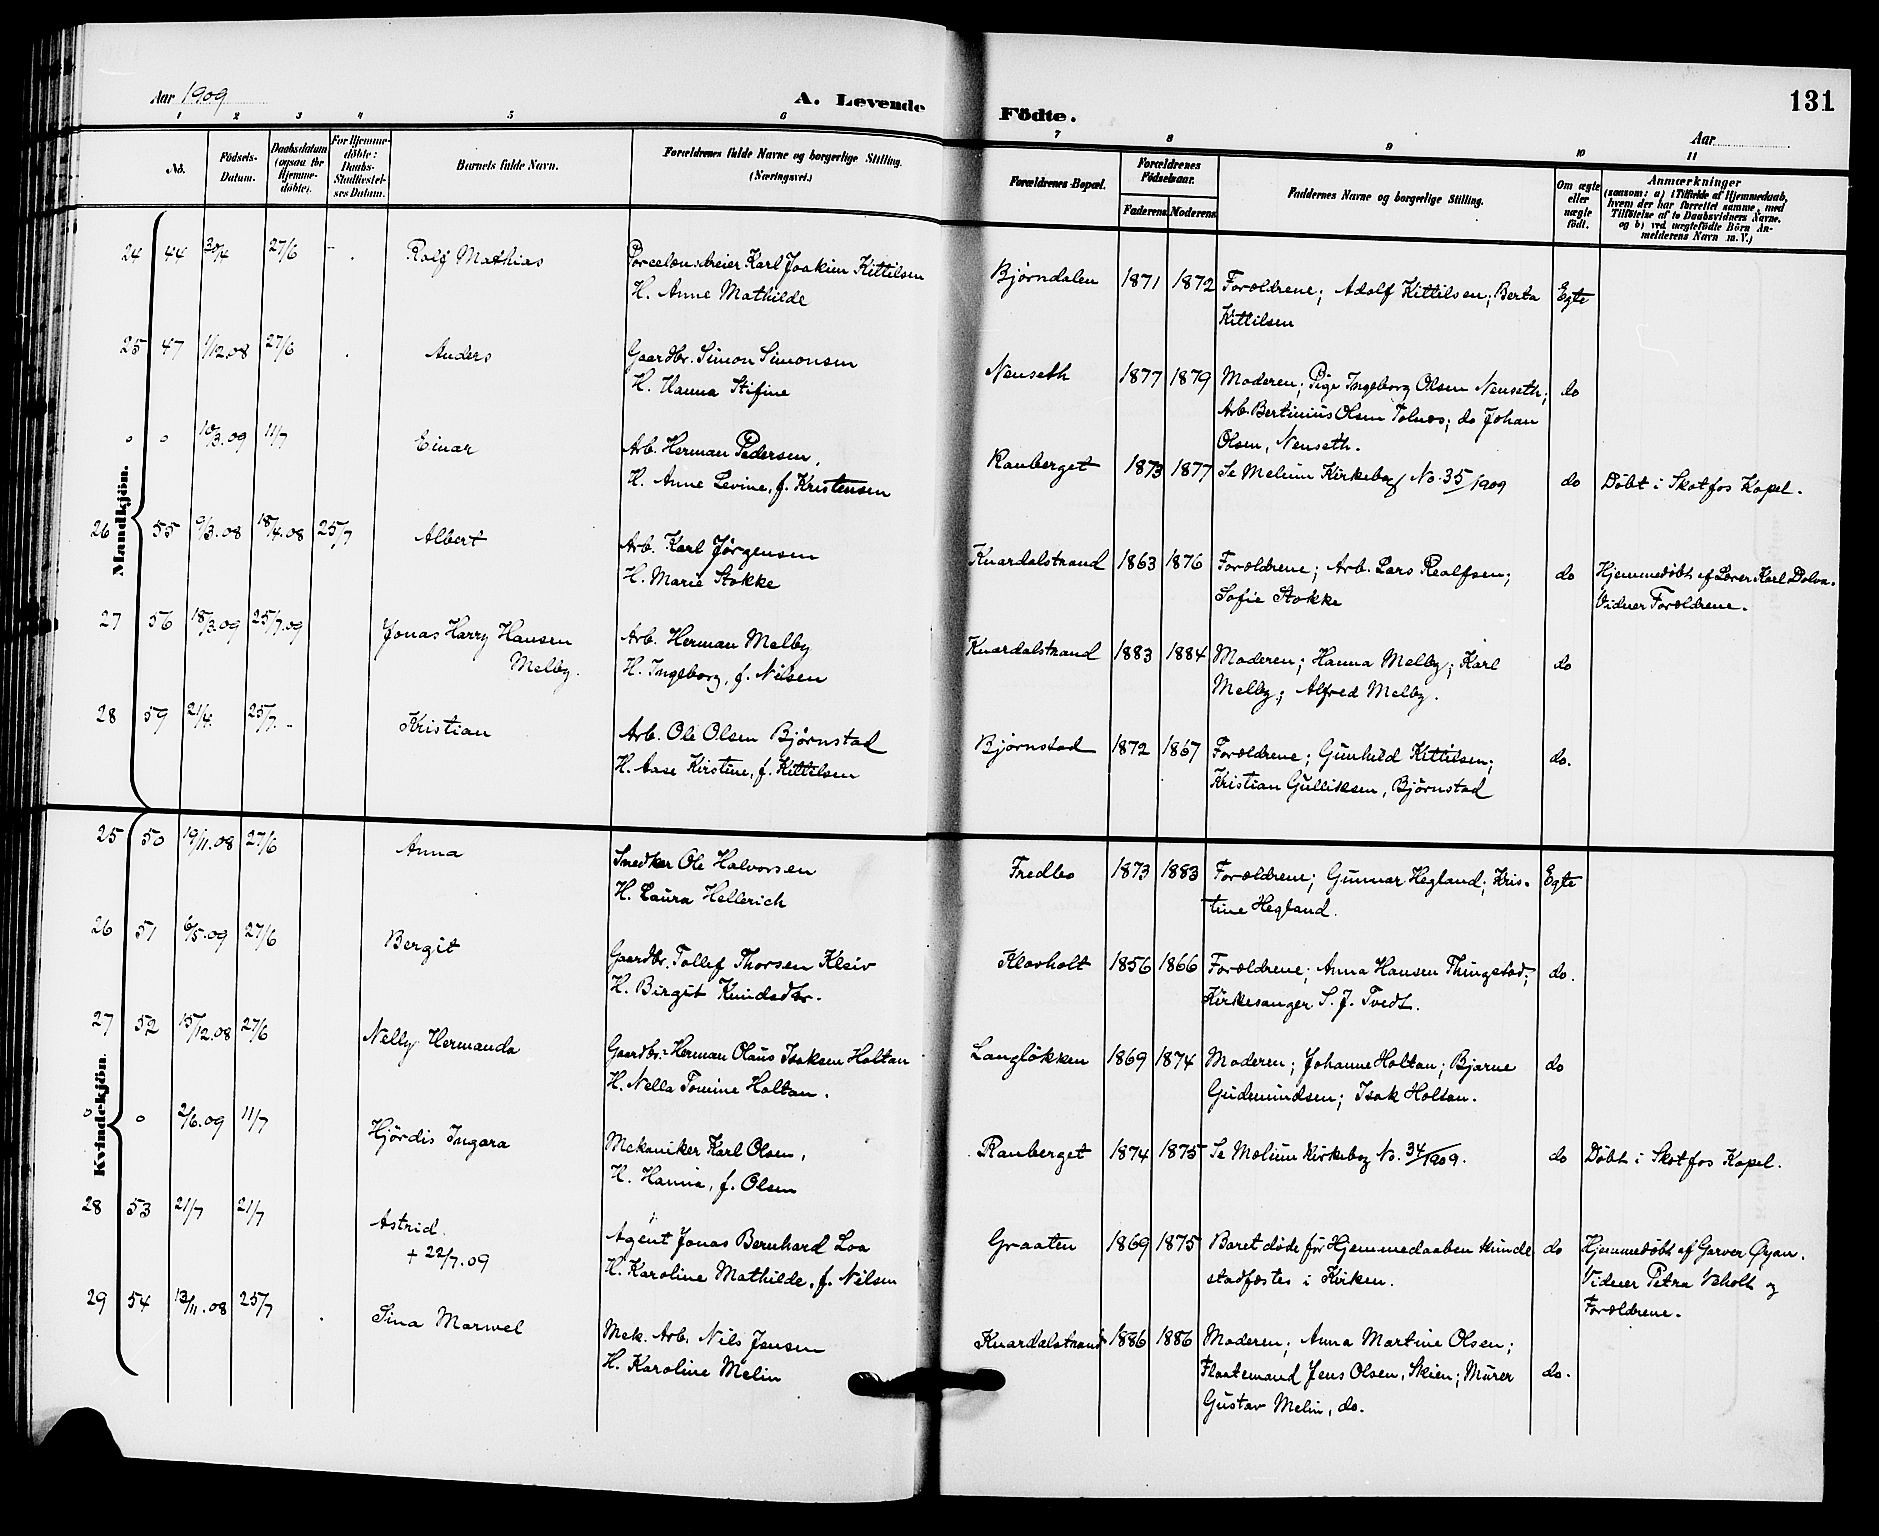 Aar 1909
A. Levende
Födte.
131
Aar
1 2 3 4 5 6 7 8 9 10 11
No.
Födsels-
Datum.
Daabsdatum
(ogsaa for
Hjemme-
döbte).
For Hjemme-
döbte:
Daabs-
Stadfæstel-
ses Datum.
Barnets fulde Navn.
Forældrenes fulde Navne og borgerlige Stilling.
(Næringsvei.)
Forældrenes Bopæl.
Forældrenes
Födselsaar.
Faderens Moderens
Faddernes Navne og borgerlige Stilling.
Om ægte
eller
uægte
födt.
Anmærkninger
(saasom: a) i Tilfælde af Hjemmedaab,
hvem der har forrettet samme, med
Tilföielse af to Daabsvidners Navne,
og b) ved uægtefödte Börn An-
melderens Navn m. V.)
Mandkjön.
24 44 30/4 27/6 - Rolf Mathias Porcelænsdreier Karl Joakim Kittilsen Bjørndalen 1871 1872 Forældrene; Adolf Kittilsen; Berta Egte
H. Anne Mathilde Kittilsen
25 47 1/12.08 27/6 Anders Gaardbr. Simon Simonsen Nenseth 1877 1879 Moderen; Pige Ingeborg Olsen Nenseth; do
H. Hanna Stifine Arb. Bertinius Olsen Tolnæs; do Johan
Olsen, Nenseth.
o o 10/3.09 11/7 Einar Arb. Herman Pedersen, Rauberget 1873 1877 Se Melum Kirkebog No. 35/1909 do Døbt i Skotfos Kapel.
H. Anne Levine, f. Kristensen
26 55 9/3.08 18/4.08 25/7 Albert Arb. Karl Jørgensen Knardalstrand 1863 1876 Forældrene; Arb. Lars Realfsen; do Hjemmedøbt af Lærer Karl Dolva.
H. Marie Stokke Sofie Stokke Vidner Forældrene.
27 56 18/3.09 25/7.09 Jonas Harry Hansen Arb. Herman Melby Knardalstrand 1883 1884 Moderen; Hanna Melby; Karl do
Melby. H. Ingeborg, f. Nilsen Melby; Alfred Melby.
28 59 21/4. 25/7. - Kristian Arb. Ole Olsen Bjørnstad Bjørnstad 1872 1867 Forældrene; Gunhild Kittilsen; do.
H. Aase Kirstine, f. Kittilsen Kristian Gulliksen, Bjørnstad
Kvindekjön.
25 50 19/11.08 27/6 Anna Snedker Ole Halvorsen Fredbo 1873 1883 Forældrene; Gunnar Hegland; Kris- Egte
H. Laura Hellerich tine Hegland.
26 51 6/5.09 27/6 Bergit Gaardbr. Tollef Thorsen Kleiv Klovholt 1856 1866 Forældrene; Anna Hansen Thingstad; do.
H. Birgit Knudsdtr. Kirkesanger S. J. Tvedt.
27 52 15/12.08 27/6 Nelly Hermanda Gaardbr. Herman Olaus Isaksen Holtan Langløkken 1869 1874 Moderen; Johanne Holtan; Bjarne do
H. Nella Tomine Holtan. Gudmundsen; Isak Holtan.
o o 2/6.09 11/7 Hjördis Ingara Mekaniker Karl Olsen, Rauberget 1874 1875 Se Melum Kirkebog No. 34/1909. do Døbt i Skotfos Kapel.
H. Hanna, f. Olsen
28 53 21/7 21/7 Astrid Agent Jonas Bernhard Loa Graaten 1869 1875 Baret døde før Hjemmedaaben kunde do Hjemmedøbt af Garver Øyan.
+ 22/7.09 H. Karoline Mathilde, f. Nilsen stadfæstes i Kirken. Vidner Petra Vaholt og
Forældrene.
29 54 13/11.08 25/7 Sina Marwel Mek. Arb. Nils Jensen Knardalstrand 1886 1886 Moderen; Anna Martine Olsen;
H. Karoline Melin Flaatemand Jens Olsen, Skien; Murer do.
Gustav Melin, do.